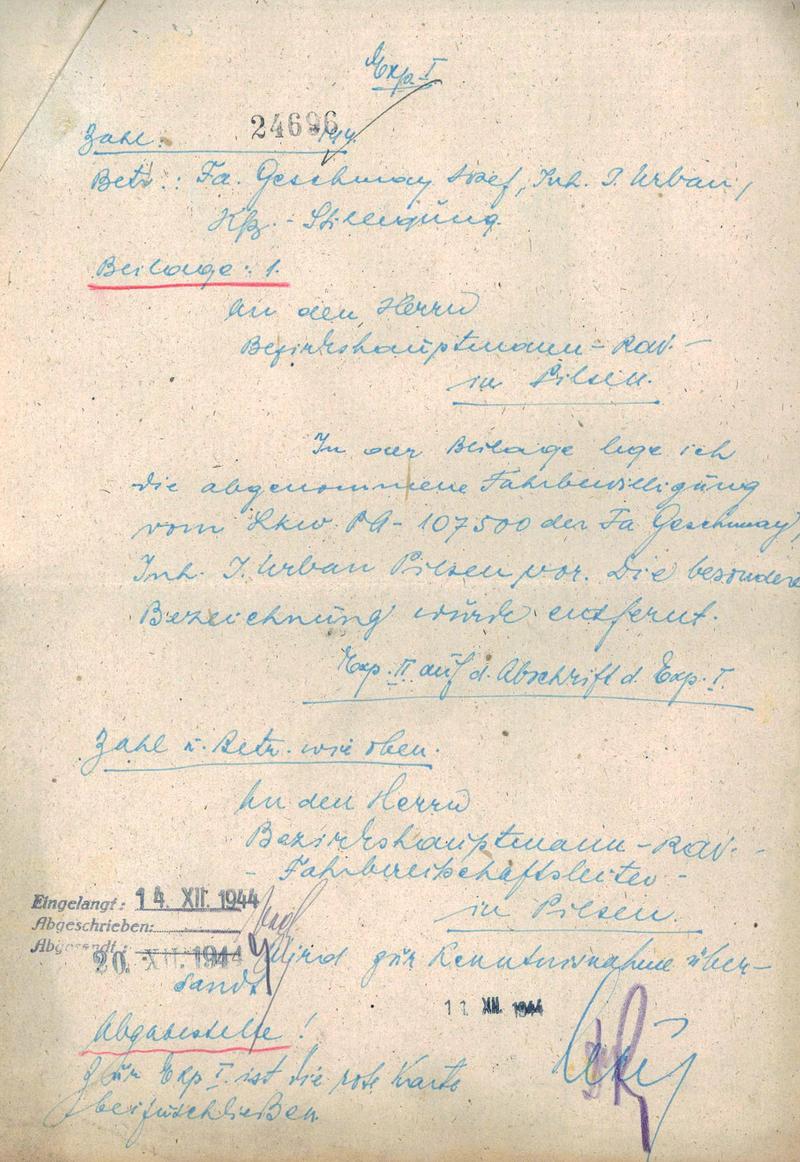 Exp. I
Zahl: 24696 /44.
Betr.: Fa. Geschmay Josef, Inh. J. Urban,
Kfz. - Stillegung.
Beilage: 1.
An den Herrn
Bezirkshauptmann - RAV. -
in Pilsen.
In der Beilage lege ich
die abgenommene Fahrbewilligung
vom Lkw. PA - 107500 der Fa Geschmay,
Inh. J. Urban Pilsen vor. Die besondere
Bezeichnung wurde entfernt.
Exp. II auf d. Abschrift d. Exp. I.
Zahl u. Betr. wie oben.
An den Herrn
Bezirkshauptmann - RAV. -
- Fahrbereitschaftsleiter -
in Pilsen.
Eingelangt: 14. XII. 1944
Abgeschrieben:
Abgesandt: 20. XII. 1944
Wird zur Kenntnisnahme über-
sandt
11 XII. 1944
Abgabestelle!
Zur Exp I. ist die rote Karte
beizuschließen.